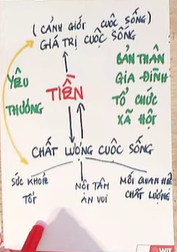 ( CẢNH GIỚI CUỘC SỐNG )
GIÁ TRỊ CUỘC SỐNG
YÊU
THƯƠNG
TIỀN
BẢN THÂN
GIA ĐÌNH
TỔ CHỨC
XÃ HỘI
CHẤT LƯỢNG CUỘC SỐNG
SỨC KHOẺ
TỐT
NỘI TÂM
AN VUI
MỐI QUAN HỆ
CHẤT LƯỢNG